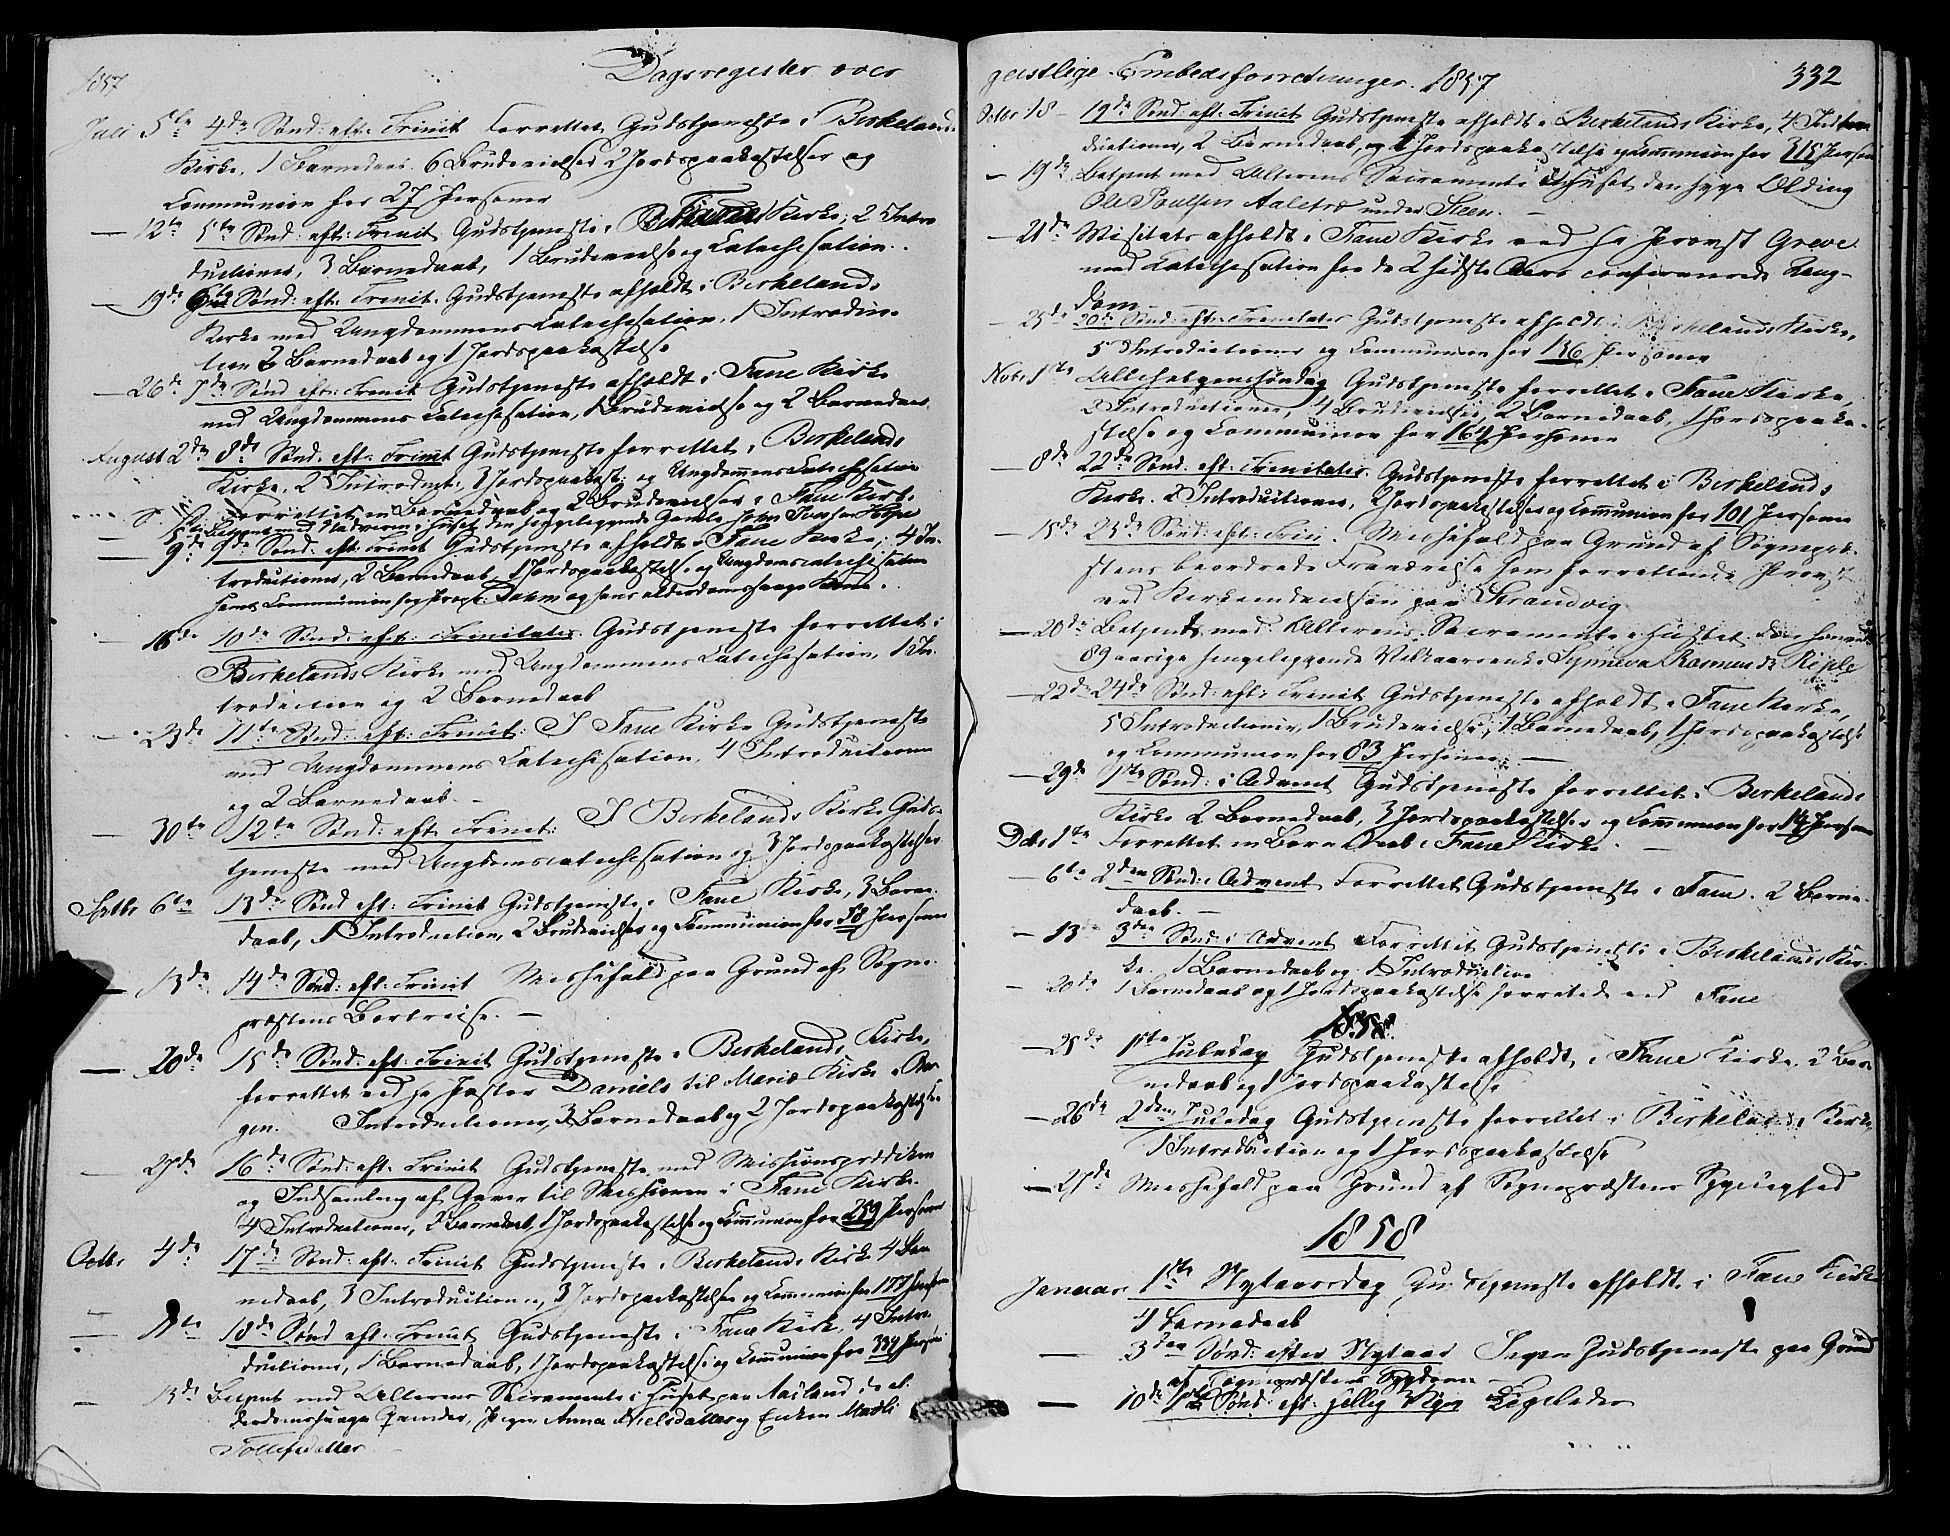 1857
Dagsregister over
Juli 5te 4de Sønd: eft: Trinit Forrettet Gudstjeneste i Birkelands
Kirke, 1 Barnedaab 6 Brudevielser 2 Jordspaakastelser og
Communion for 27 Personer
— 12te 5te Sønd: eft: Trinit Gudstjeneste i Fane Kirke, 2 Intro
ductioner, 3 Barnedaab, 1 Brudevielse og Catechisation.
— 19de 6te Sønd: eft: Trinit. Gudstjeneste afholdt i Birkelands
Kirke med Ungdommens Catechisation, 1 Introduc
tion 2 Barnedaab og 1 Jordspaakastelse
— 26de 7de Sønd eft: Trinit Gudstjeneste afholdt i Fane Kirke
med Ungdommens Catechisation, 1 Brudevielse og 2 Barnedaab.
August 2den 8de Sønd. eft. Trinit Gudstjeneste forrettet i Birkelands
Kirke, 2 Introduct:, 3 Jordspaakast: og Ungdommens Catechisation
Forrettet en Barnedaab og 2 Brudevielser i Fane Kirke
— 9de 9de Sønd: eft: Trinit Gudstjeneste afholdt i Fane Kirke, 4 In-
troductioner, 2 Barnedaab, 1 Jordspaakastelse og Ungdomscatechisation
samt Communion for Propr. Dahm og hans alderdomssvage Kone.
— 16de 10de Sønd: eft: Trinitatis Gudstjeneste forrettet i
Birkelands Kirke med Ungdommens Catechisation, 1 In-
troduction og 2 Barnedaab
— 23de 11te Sønd: eft: Trinit: I Fane Kirke Gudstjeneste
med Ungdommens Catechisation, 4 Introductioner
og 2 Barnedaab. —
— 30te 12te Sønd: eft Trinit: I Birkelands Kirke Guds-
tjeneste med Ungdomscatechisation og 3 Jordspaakastelser
Septbr 6te 13de Sønd eft: Trinit Gudstjeneste i Fane Kirke, 3 Barne-
daab, 1 Introduction, 2 Brudevielser og Communion for 58 Personer
— 13de 14de Sønd: eft: Trinit Messefald paa Grund af Sogne-
præstens Bortreise. —
— 20de 15de Sønd: eft: Trinit Gudstjeneste i Birkelands Kirke,
forrettet ved Hr Pastor Daniels til Marie Kirke i Ber
gen. Introductioner, 3 Barnedaab og 2 Jordspaakastelser
— 27de 16de Sønd: eft. Trinit Gudstjeneste med Missionsprædiken
og Indsamling af Gaver til Missionen i Fane Kirke
4 Introductioner, 2 Barnedaab, 1 Jordspaakastelse og Communion for 259 Personer
Octbr 4de 17de Sønd: eft: Trinit Gudstjeneste i Birkelands Kirke 4 Bar
nedaab, 3 Introductioner, 3 Jordspaakastelser og Communion for 177 Personer
— 11te 18de Sønd eft: Trinit Gudstjeneste i Fane Kirke, 4 Intro-
ductioner, 1 Barnedaab, 1 Jordspaakastelse og Communion for 334 Personer
— 13de Betjent med Alterens Sacramente i Huset paa Aadland de al-
derdomssvage Qvinder, Pigen Anna Nielsdatter og Enken Madli
Tollefsdatter —
geistlige Embedsforretninger. 1857
332
Octbr 18 — 19de Sønd: eft: Trinit Gudstjeneste afholdt i Birkelands Kirke, 4 Intro
ductioner, 2 Barnedaab, og 1 Jordspaakastelse og Communion for 115 Person
— 19de Betjent med Alterens Sacramente i Huset den syge Olding
Ole Poulsen Aaletræ under Steen. —
— 21de Visitats afholdt i Fane Kirke ved Hr Provst Greve
med Catechisation for de 2 sidste Aars confirmerede Ung-
dom —
— 25de 20de Sønd: eft: Trinitatis Gudstjeneste afholdt i Birkelands Kirke,
5 Introductioner og Communion for 136 Personer
Novbr 1ste Allehelgenssøndag Gudstjeneste forrettet i Fane Kirke,
2 Introductioner, 4 Brudevielser, 2 Barnedaab, 1 Jordspaaka-
stelse og Communion for 164 Personer
— 8de 22de Sønd: eft: Trinitatis. Gudstjeneste forrettet i Birkelands
Kirke. 2 Introductioner, 2 Jordspaakastelser og Communion for 101 Personer
— 15de 23de Sønd: eft: Trin. Messefald paa Grund af Sognepræ-
stens beordrede Fraværelse som forrettende Provst
ved Kirkeindvielsen paa Strandvig
— 20de Betjent med Alterens Sacramente i Huset den
89 aarige sengeliggende Vilkaarsenke Synneva Rasmusdr Riple
— 22de 24de Sønd: eft: Trinit Gudstjeneste afholdt i Fane Kirke,
5 Introductioner, 1 Brudevielse, 1 Barnedaab, 1 Jordspaakastelse
og Communion for 83 Personer. —
— 29de 1ste Sønd: i Advent Gudstjeneste forrettet i Birkelands
Kirke 2 Barnedaab, 3 Jordspaakastelser og Communion for 14 Personer
Decbr 1ste Forrettet en Barnedaab i Fane Kirke. —
— 6te 2den Sønd: i Advent Forrettet Gudstjeneste i Fane. 2 Barne-
daab. —
— 13 3die Sønd: i Advent Forrettet Gudstjeneste i Birkelands Kir-
ke. 1 Barnedaab og 1 Introduction
— 20de 1 Barnedaab og 1 Jordspaakastelse forrettede ved Fane
1858.
— 25de 1ste Juledag Gudstjeneste afholdt i Fane Kirke. 2 Bar
nedaab og 1 Jordspaakastelse
— 26de 2den Juledag Gudstjeneste forrettet i Birkelands Kirke
1 Introduction og 1 Jordspaakastelse
— 27de Messefald paa Grund af Sognepræstens Sygelighed
1858
Januar 1ste Nytaarsdag Gudstjeneste afholdt i Fane Kirke
4 Barnedaab
— 3die Sønd: efter Nytaar Ingen Gudstjeneste paa Grund
af Sognepræstens Sygdom —
— 10de 1ste Sønd: eft: hellig 3 Kgr Ligeledes